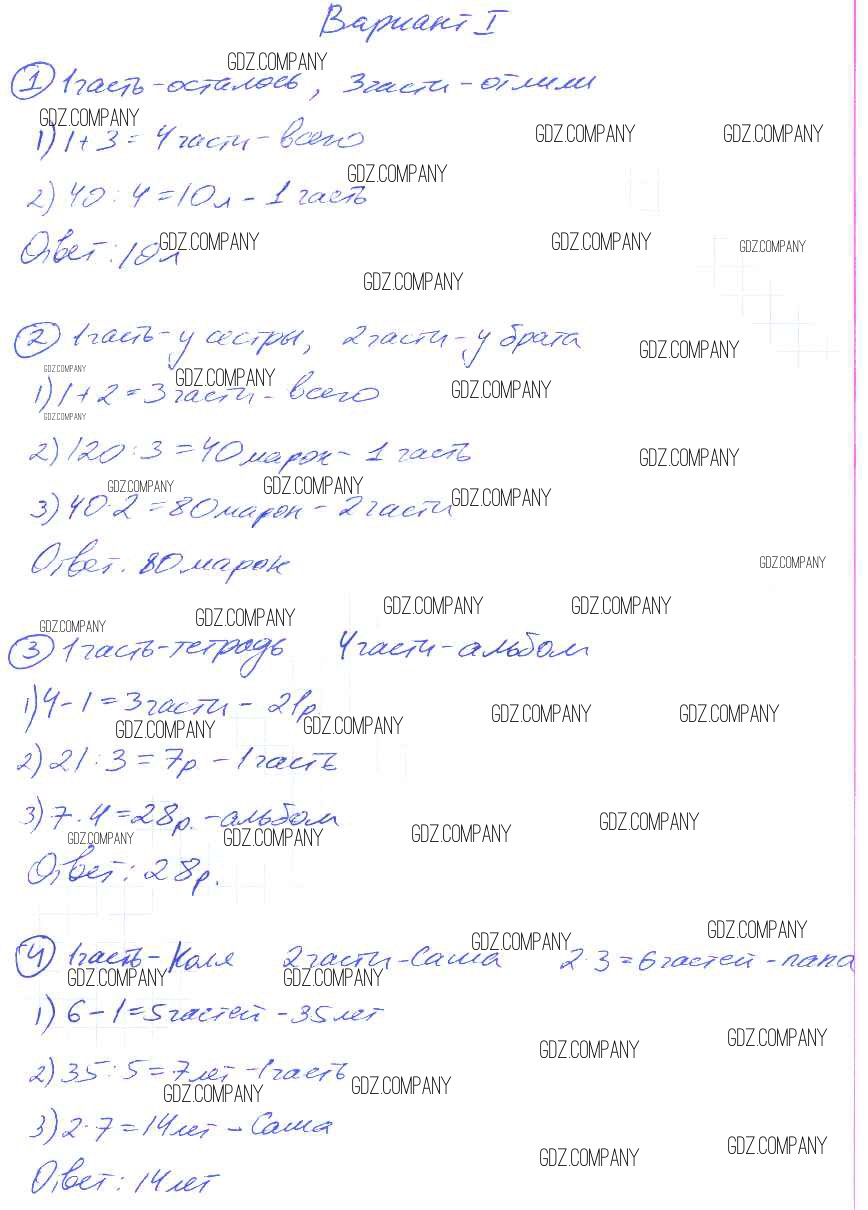 Вариант I
GDZ.COMPANY
1 1 часть - осталось, 3 части - отлили
GDZ.COMPANY
1) 1 + 3 = 4 части - всего
GDZ.COMPANY GDZ.COMPANY
GDZ.COMPANY
2) 40 : 4 = 10 л - 1 часть
Ответ: 10 л
GDZ.COMPANY GDZ.COMPANY GDZ.COMPANY
GDZ.COMPANY
2 1 часть - у сестры, 2 части - у брата
GDZ.COMPANY
GDZ.COMPANY GDZ.COMPANY GDZ.COMPANY
1) 1 + 2 = 3 части - всего
GDZ.COMPANY
2) 120 : 3 = 40 марок - 1 часть
GDZ.COMPANY
GDZ.COMPANY GDZ.COMPANY GDZ.COMPANY
3) 40 · 2 = 80 марок - 2 части
Ответ: 80 марок
GDZ.COMPANY
GDZ.COMPANY GDZ.COMPANY GDZ.COMPANY GDZ.COMPANY
3 1 часть - тетрадь 4 части - альбом
1) 4 - 1 = 3 части - 21 р
GDZ.COMPANY GDZ.COMPANY GDZ.COMPANY GDZ.COMPANY
2) 21 : 3 = 7 р - 1 часть
3) 7 · 4 = 28 р. - альбом
GDZ.COMPANY GDZ.COMPANY GDZ.COMPANY GDZ.COMPANY
Ответ: 28 р.
GDZ.COMPANY GDZ.COMPANY
4 1 часть - Коля 2 части - Саша 2 · 3 = 6 частей - папа
GDZ.COMPANY GDZ.COMPANY
1) 6 - 1 = 5 частей - 35 лет
GDZ.COMPANY GDZ.COMPANY
2) 35 : 5 = 7 лет - 1 часть
GDZ.COMPANY GDZ.COMPANY
3) 2 · 7 = 14 лет - Саша
GDZ.COMPANY GDZ.COMPANY
Ответ: 14 лет